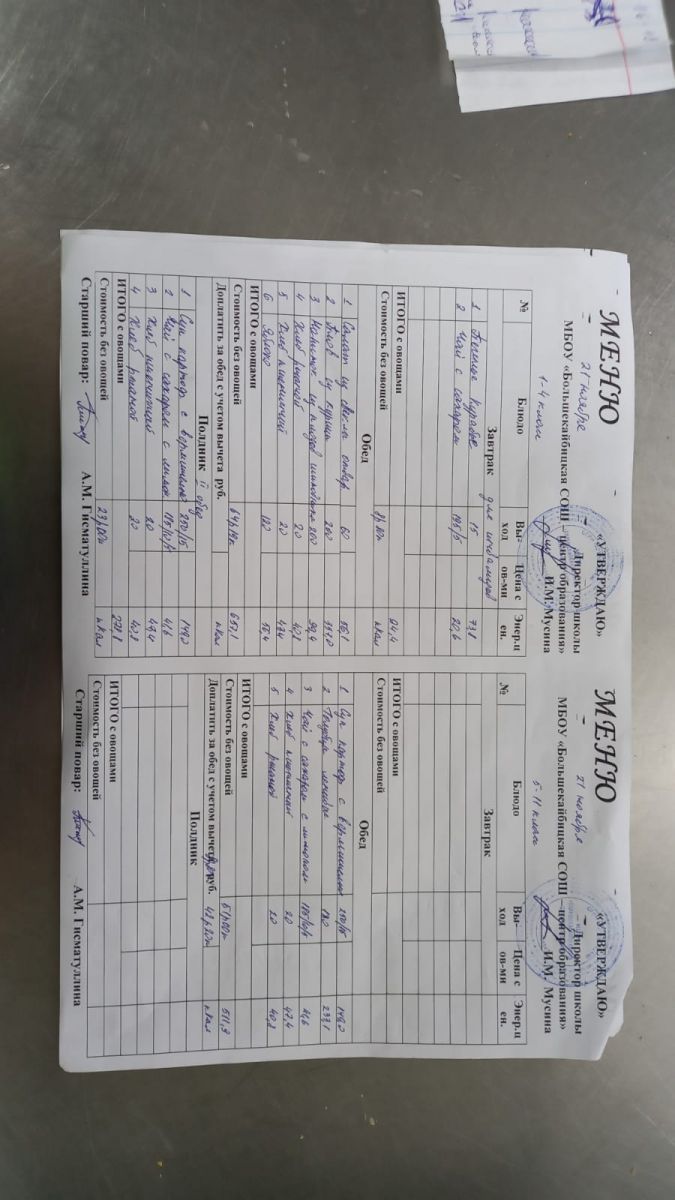 «УТВЕРЖДАЮ»
Директор школы
И.М. Мусина
МБОУ «Большекайбицкая СОШ – центр образования»
МЕНЮ
21 ноября
1-4 класс
№ Блюдо Вы-ход Цена с ов-ми Энер.ц ен.
Завтрак для инвалидов
1 Печенье Курабье 15 73,8
2 Чай с сахаром 195/5 20,6
ИТОГО с овощами 94,4
Стоимость без овощей 8р80к кКал
Обед
1 Салат из свеклы отвар 60
2 Плов из курицы 200
3 Напиток из плодов шиповника 200
4 Хлеб ржаной 20 40,8
5 Хлеб пшеничный 20 47,4
6 Яблоко 120 56,4
ИТОГО с овощами
Стоимость без овощей 657,1
Доплатить за обед с учетом вычета руб. кКал
Полдник II обед
1 Суп картоф с вермишелью 250/15 149,0
2 Чай с сахаром с лимон 41,6
3 Хлеб пшеничный 20 47,4
4 Хлеб ржаной 20 40,8
ИТОГО с овощами
Стоимость без овощей 23р00к кКал
Старший повар: А.М. Гисматуллина
«УТВЕРЖДАЮ»
Директор школы
И.М. Мусина
МБОУ «Большекайбицкая СОШ – центр образования»
МЕНЮ
21 ноября
5-11 класс
№ Блюдо Вы-ход Цена с ов-ми Энер.ц ен.
Завтрак
ИТОГО с овощами
Стоимость без овощей
Обед
1 Суп картоф с вермишелью 250/15 149,0
2 Голубцы ленивые 233,1
3 Чай с сахаром с лимоном 41,6
4 Хлеб пшеничный 20 47,4
5 Хлеб ржаной 20 40,8
ИТОГО с овощами
Стоимость без овощей 61р00к 511,9
Доплатить за обед с учетом вычета руб. 42р20к кКал
Полдник
ИТОГО с овощами
Стоимость без овощей
Старший повар: А.М. Гисматуллина